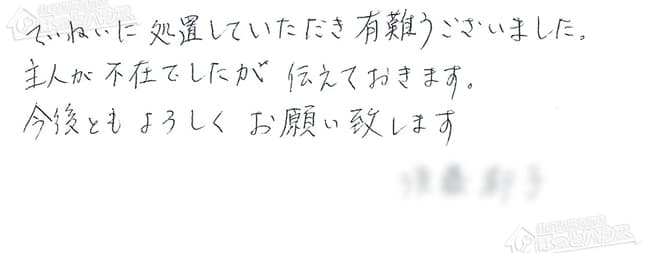 ていねいに処置していただき有難うございました。
主人が不在でしたが伝えておきます。
今後ともよろしくお願い致します
ほっとハウス